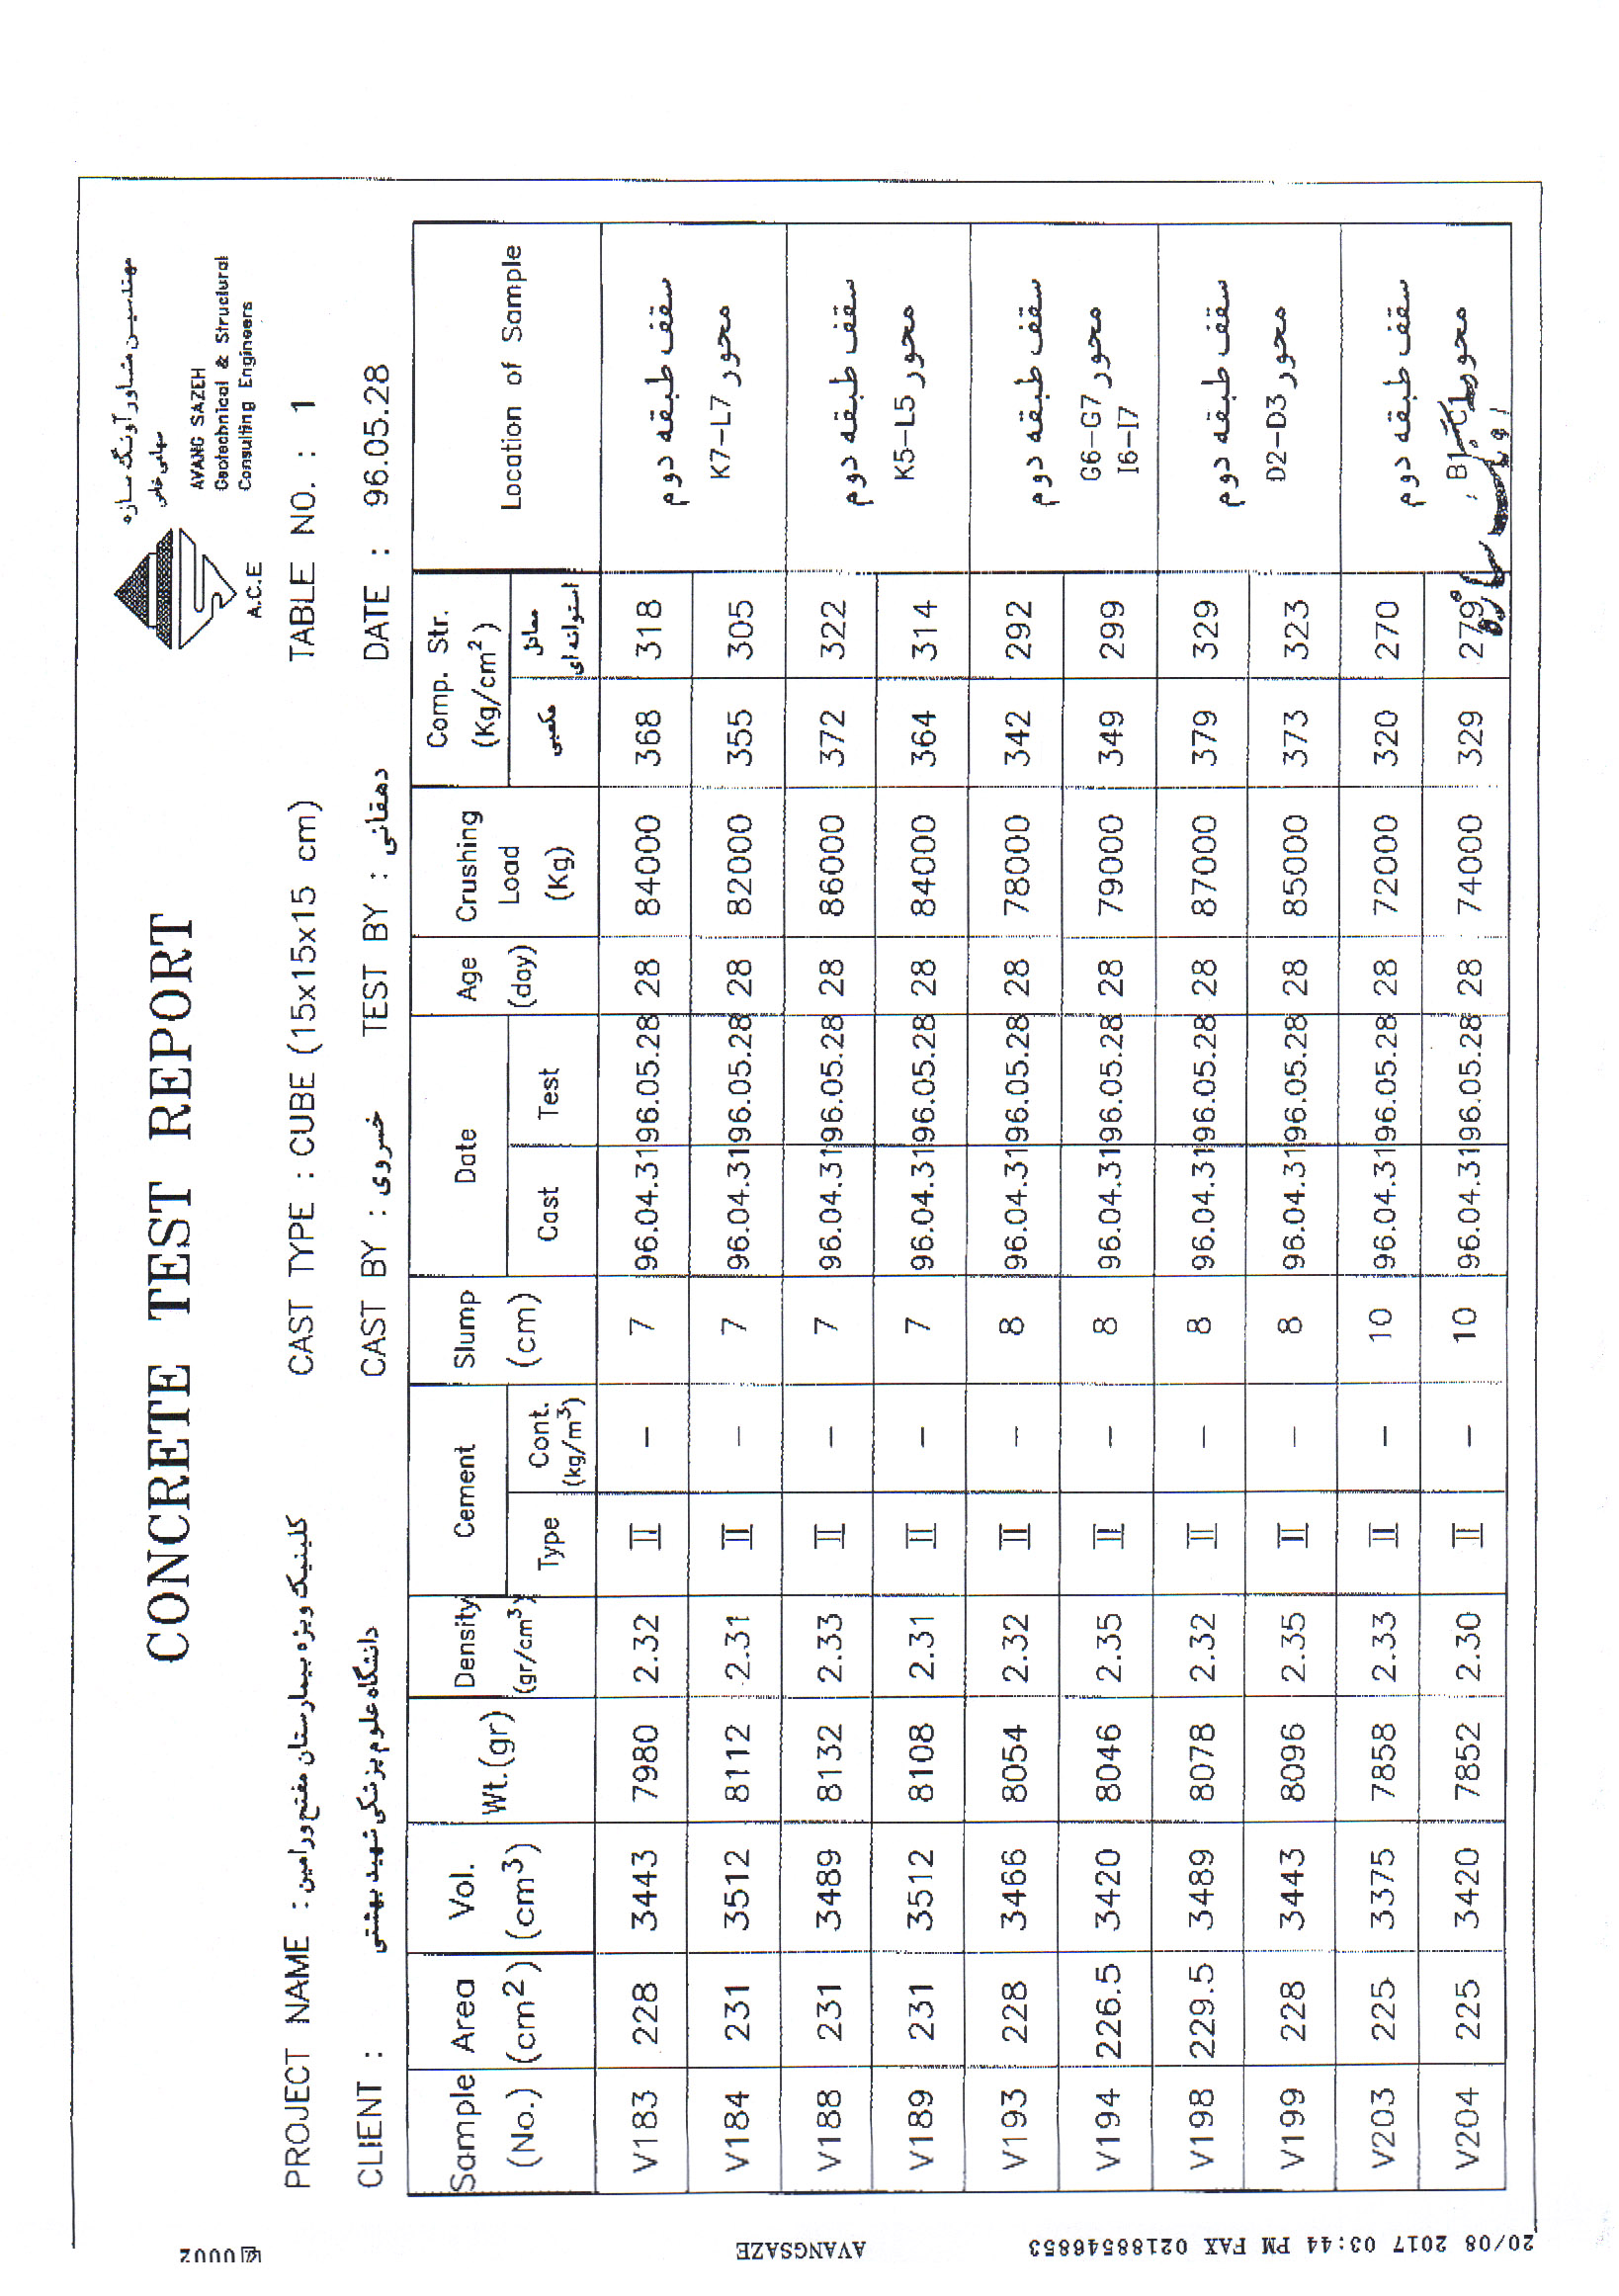 CONCRETE TEST REPORT
مهندسین مشاور آونگ سازه
سهامی خاص
AVANG SAZEH
Geotechnical & Structural
Consulting Engineers
A.C.E
PROJECT NAME : کلینیک ویژه بیمارستان مفتح ورامین CAST TYPE : CUBE (15x15x15 cm) TABLE NO. : 1
CLIENT : دانشگاه علوم پزشکی شهید بهشتی CAST BY : خسروی TEST BY : دهقانی DATE : 96.05.28
Sample (No.) Area (cm2) Vol. (cm3) Wt.(gr) Density (gr/cm3) Cement Type Cont. (kg/m3) Slump (cm) Date Cast Test Age (day) Crushing Load (Kg) Comp. Str. (Kg/cm2) مکعبی معادل استوانه ای Location of Sample
V183 228 3443 7980 2.32 II - 7 96.04.31 96.05.28 28 84000 368 318 سقف طبقه دوم
V184 231 3512 8112 2.31 II - 7 96.04.31 96.05.28 28 82000 355 305 محور K7-L7
V188 231 3489 8132 2.33 II - 7 96.04.31 96.05.28 28 86000 372 322 سقف طبقه دوم
V189 231 3512 8108 2.31 II - 7 96.04.31 96.05.28 28 84000 364 314 محور K5-L5
V193 228 3466 8054 2.32 II - 8 96.04.31 96.05.28 28 78000 342 292 سقف طبقه دوم
V194 226.5 3420 8046 2.35 II - 8 96.04.31 96.05.28 28 79000 349 299 محور G6-G7 I6-I7
V198 229.5 3489 8078 2.32 II - 8 96.04.31 96.05.28 28 87000 379 329 سقف طبقه دوم
V199 228 3443 8096 2.35 II - 8 96.04.31 96.05.28 28 85000 373 323 محور D2-D3
V203 225 3375 7858 2.33 II - 10 96.04.31 96.05.28 28 72000 320 270 سقف طبقه دوم
V204 225 3420 7852 2.30 II - 10 96.04.31 96.05.28 28 74000 329 279 محور B1-C1
20/08 2017 03:44 PM FAX 02188546853 AVANGSAZE 0002